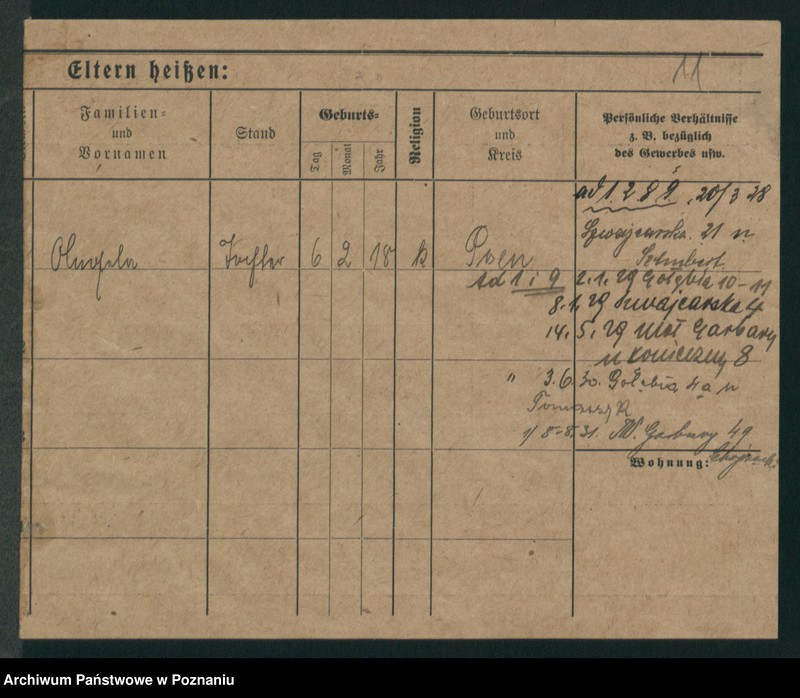 11
Eltern heißen:
Familien-
und
Vornamen
Stand
Geburts-
Tag
Monat
Jahr
Religion
Geburtsort
und
Kreis
Persönliche Verhältnisse
z. B. bezüglich
des Gewerbes usw.
ad 1 2 8 9. 20/3 28
Szwajcarska. 21 u
Angela Tochter 6 2 18 k Posen
ad 1 i 9 2.1.29 Gołębia 10-11
8.1.29 Szwajcarska 4
14.5.29 Małe Garbary
u 8
" 3.6.30. Gołębia 4a u
8.8.31. W. Garbary 49
Wohnung:
Archiwum Państwowe w Poznaniu